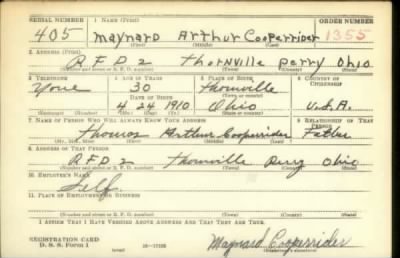 SERIAL NUMBER 1. NAME (Print) ORDER NUMBER
405 Maynard Arthur Cooperrider 1355
(First) (Middle) (Last)
2. ADDRESS (Print)
R.F.D 2 Thornville Perry Ohio
(Number and street or R. F. D. number) (Town) (County) (State)
3. TELEPHONE 4. AGE IN YEARS 5. PLACE OF BIRTH 6. COUNTRY OF CITIZENSHIP
None 30 Thornville
DATE OF BIRTH (Town or county)
4 24 1910 Ohio U.S.A.
(Exchange) (Number) (Mo.) (Day) (Yr.) (State or country)
7. NAME OF PERSON WHO WILL ALWAYS KNOW YOUR ADDRESS 8. RELATIONSHIP OF THAT PERSON
Thomas Arthur Cooperrider Father
(Mr., Mrs., Miss) (First) (Middle) (Last)
9. ADDRESS OF THAT PERSON
R.F.D 2 Thornville Perry Ohio
(Number and street or R. F. D. number) (Town) (County) (State)
10. EMPLOYER'S NAME
Self
11. PLACE OF EMPLOYMENT OR BUSINESS
(Number and street or R. F. D. number) (Town) (County) (State)
I AFFIRM THAT I HAVE VERIFIED ABOVE ANSWERS AND THAT THEY ARE TRUE.
REGISTRATION CARD
D. S. S. Form 1 Maynard Cooperrider
(Registrant's signature)